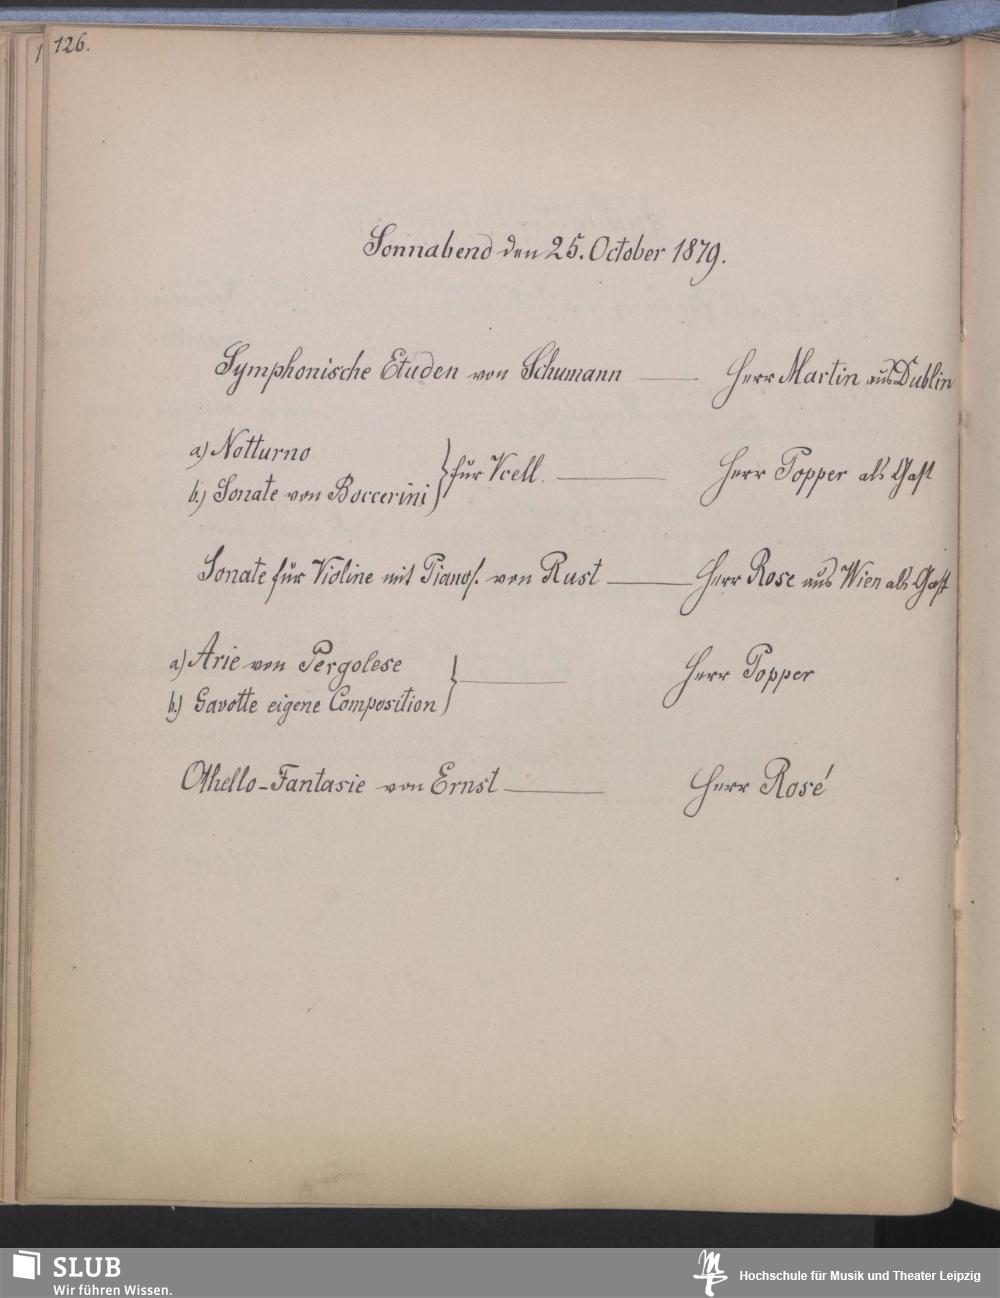 126.
Sonnabend den 25. October 1879.
Symphonische Etuden von Schumann — Herr Martin aus Dublin
a) Notturno
b.) Sonate von Boccerini } für Vcell. — Herr Popper als Gast
Sonate für Violine mit Pianof. von Rust — Herr Rose aus Wien als Gast
a) Arie von Pergolese
b.) Gavotte eigene Composition } — Herr Popper
Othello-Fantasie von Ernst — Herr Rosé
SLUB
Wir führen Wissen.
Hochschule für Musik und Theater Leipzig